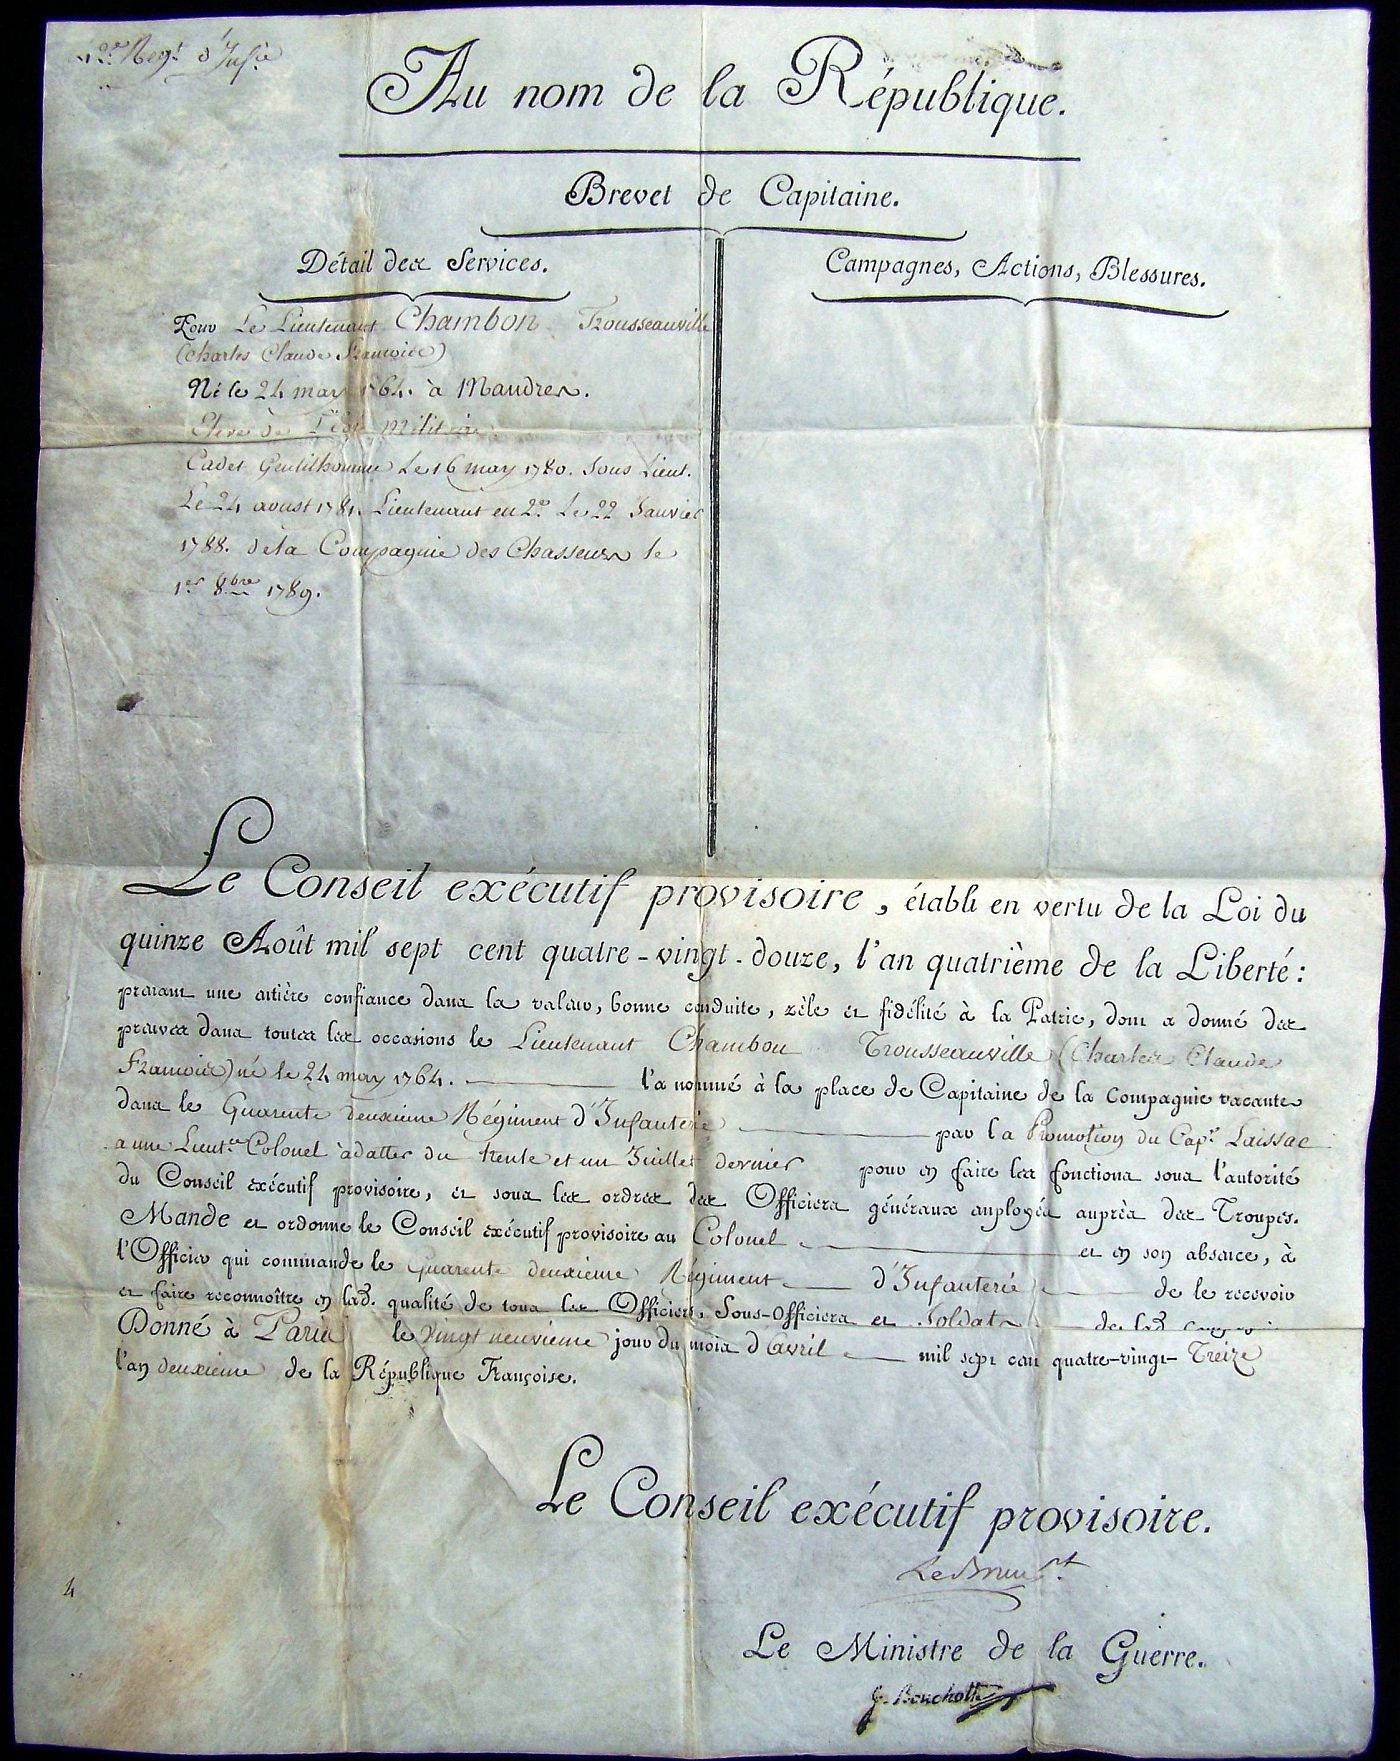 42.e Reg.t d'Inf.ie
Au nom de la République.
Brevet de Capitaine.
Détail des Services.
Campagnes, Actions, Blessures.
Pour Le Lieutenant Chambon Trousseauville
(Charles Claude François)
Né le 24 may 1764. à Mandres.
Eleve de l'Ecole Militaire
Cadet Gentilhomme Le 16 may 1780. Sous Lieut.
Le 24 aoust 1781. Lieutenant en 2.e Le 22 Janvier
1788. de la Compagnie des Chasseurs le
1.er 8.bre 1789.
Le Conseil exécutif provisoire, établi en vertu de la Loi du
quinze Août mil sept cent quatre-vingt-douze, l'an quatrième de la Liberté:
prenant une entière confiance dans la valeur, bonne conduite, zèle et fidélité à la Patrie, dont a donné des
preuves dans toutes les occasions le Lieutenant Chambon Trousseauville (Charles Claude
François) né le 24 may 1764. l'a nommé à la place de Capitaine de la Compagnie vacante
dans le Quarente deuxieme Régiment d'Infanterie par la Promotion du Cap.e Laissac
a une Lieut.ce Colonel à datter du trente et un Juillet dernier pour en faire les fonctions sous l'autorité
du Conseil exécutif provisoire, et sous les ordres des Officiers généraux employés auprès des Troupes.
Mande et ordonne le Conseil exécutif provisoire au Colonel et en son absence, à
l'Officier qui commande le quarente deuxieme Régiment d'Infanterie de le recevoir
et faire reconnoître en lad. qualité de tous les Officiers, Sous-Officiers et Soldats de lad.
Donné à Paris le Vingt neuvieme jour du mois d'Avril mil sept cent quatre-vingt-Treize
l'an deuxieme de la République Françoise.
Le Conseil exécutif provisoire.
LeBrun
4
Le Ministre de la Guerre.
J. Bouchotte